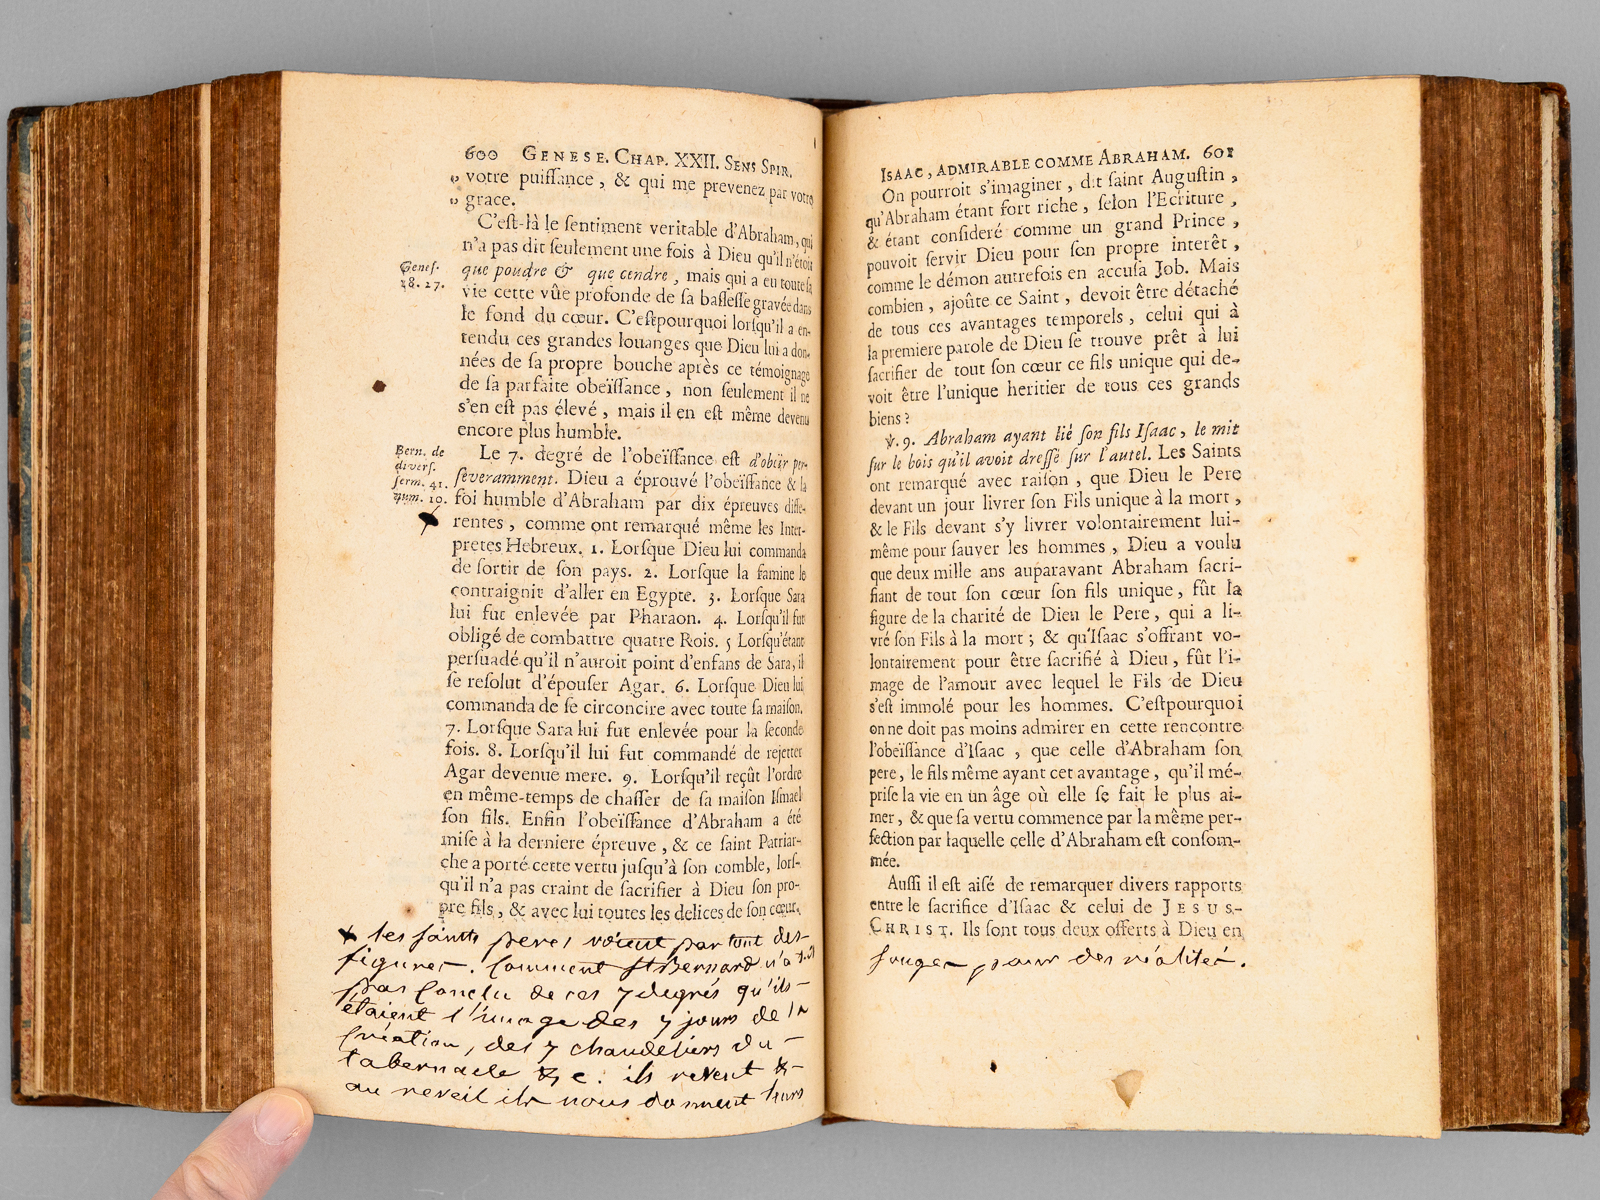 600 GENESE. CHAP. XXII. SENS SPIR.
„ votre puiſſance, & qui me prevenez par votre
„ grace.
C'eſt-là le ſentiment veritable d'Abraham, qui
n'a pas dit ſeulement une fois à Dieu qu'il n'étoit
Geneſ.
18. 27.
que poudre & que cendre, mais qui a eu toute ſa
vie cette vûe profonde de ſa baſſeſſe gravée dans
le fond du cœur. C'eſtpourquoi lorſqu'il a en-
tendu ces grandes louanges que Dieu lui a don-
nées de ſa propre bouche après ce témoignage
de ſa parfaite obeïſſance, non ſeulement il ne
s'en eſt pas élevé, mais il en eſt même devenu
encore plus humble.
Bern. de
diverſ.
ſerm. 41.
num. 10.
Le 7. degré de l'obeïſſance eſt d'obéir per-
ſeveramment. Dieu a éprouvé l'obeïſſance & la
foi humble d'Abraham par dix épreuves diffe-
rentes, comme ont remarqué même les Inter-
pretes Hebreux. 1. Lorſque Dieu lui commanda
de ſortir de ſon pays. 2. Lorſque la famine le
contraignit d'aller en Egypte. 3. Lorſque Sara
lui fut enlevée par Pharaon. 4. Lorſqu'il fut
obligé de combattre quatre Rois. 5 Lorſqu'étant
perſuadé qu'il n'auroit point d'enfans de Sara, il
ſe reſolut d'épouſer Agar. 6. Lorſque Dieu lui
commanda de ſe circoncire avec toute ſa maiſon.
7. Lorſque Sara lui fut enlevée pour la ſeconde
fois. 8. Lorſqu'il lui fut commandé de rejetter
Agar devenue mere. 9. Lorſqu'il reçût l'ordre
en même-temps de chaſſer de ſa maiſon Iſmael
ſon fils. Enfin l'obeïſſance d'Abraham a été
miſe à la derniere épreuve, & ce ſaint Patriar-
che a porté cette vertu juſqu'à ſon comble, lorſ-
qu'il n'a pas craint de ſacrifier à Dieu ſon pro-
pre fils, & avec lui toutes les delices de ſon cœur.
les saints peres voient par tout des
figures. Comment St Bernard n'a t-il
pas conclu de ces 7 degrés qu'ils
étaient l'image des 7 jours de la
Création, des 7 chandeliers du
tabernacle &c. ils revent &
au reveil ils nous donnent leurs
ISAAC, ADMIRABLE COMME ABRAHAM. 601
On pourroit s'imaginer, dit ſaint Auguſtin,
qu'Abraham étant fort riche, ſelon l'Ecriture,
& étant conſideré comme un grand Prince,
pouvoit ſervir Dieu pour ſon propre interêt,
comme le démon autrefois en accuſa Job. Mais
combien, ajoûte ce Saint, devoit être détaché
de tous ces avantages temporels, celui qui à
la premiere parole de Dieu ſe trouve prêt à lui
ſacrifier de tout ſon cœur ce fils unique qui de-
voit être l'unique heritier de tous ces grands
biens?
℣. 9. Abraham ayant lié ſon fils Iſaac, le mit
ſur le bois qu'il avoit dreſſé ſur l'autel. Les Saints
ont remarqué avec raiſon, que Dieu le Pere
devant un jour livrer ſon Fils unique à la mort,
& le Fils devant s'y livrer volontairement lui-
même pour ſauver les hommes, Dieu a voulu
que deux mille ans auparavant Abraham ſacri-
fiant de tout ſon cœur ſon fils unique, fût la
figure de la charité de Dieu le Pere, qui a li-
vré ſon Fils à la mort; & qu'Iſaac s'offrant vo-
lontairement pour être ſacrifié à Dieu, fût l'i-
mage de l'amour avec lequel le Fils de Dieu
s'eſt immolé pour les hommes. C'eſtpourquoi
on ne doit pas moins admirer en cette rencontre
l'obeïſſance d'Iſaac, que celle d'Abraham ſon
pere, le fils même ayant cet avantage, qu'il mé-
priſe la vie en un âge où elle ſe fait le plus ai-
mer, & que ſa vertu commence par la même per-
fection par laquelle celle d'Abraham eſt conſom-
mée.
Auſſi il eſt aiſé de remarquer divers rapports
entre le ſacrifice d'Iſaac & celui de JESUS-
CHRIST. Ils ſont tous deux offerts à Dieu en
songes pour des réalités.